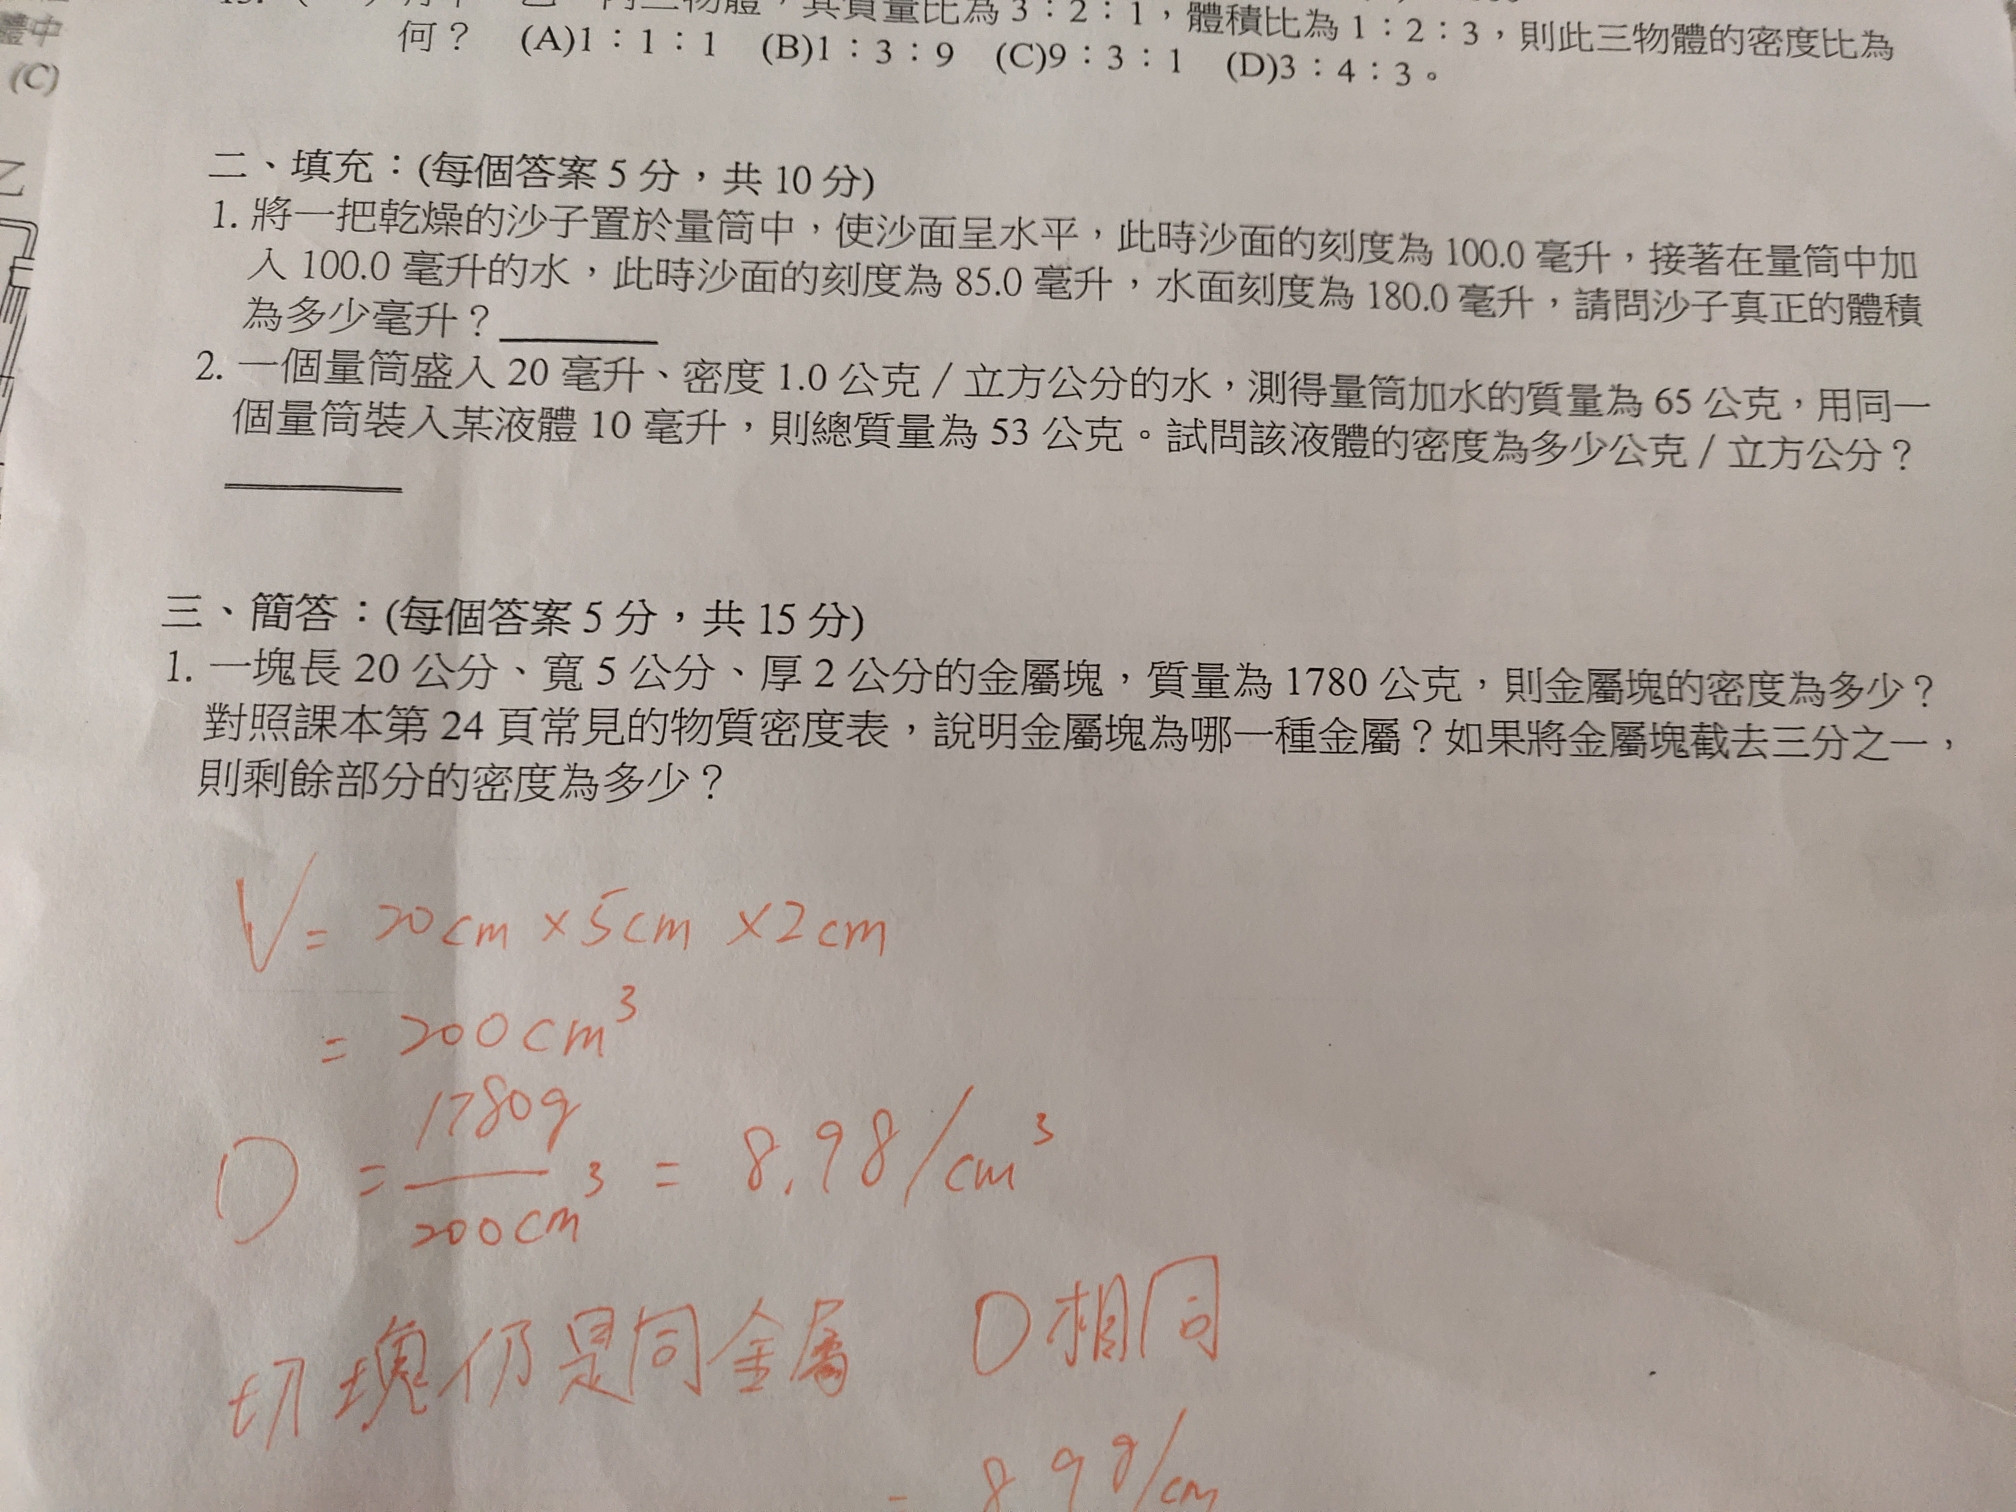 體中
(C)
乙
三物體，其質量比為 3：2：1，體積比為 1：2：3，則此三物體的密度比為
何？ (A)1：1：1 (B)1：3：9 (C)9：3：1 (D)3：4：3。
二、填充：(每個答案 5 分，共 10 分)
1. 將一把乾燥的沙子置於量筒中，使沙面呈水平，此時沙面的刻度為 100.0 毫升，接著在量筒中加
入 100.0 毫升的水，此時沙面的刻度為 85.0 毫升，水面刻度為 180.0 毫升，請問沙子真正的體積
為多少毫升？
2. 一個量筒盛入 20 毫升、密度 1.0 公克 / 立方公分的水，測得量筒加水的質量為 65 公克，用同一
個量筒裝入某液體 10 毫升，則總質量為 53 公克。試問該液體的密度為多少公克 / 立方公分？
三、簡答：(每個答案 5 分，共 15 分)
1. 一塊長 20 公分、寬 5 公分、厚 2 公分的金屬塊，質量為 1780 公克，則金屬塊的密度為多少？
對照課本第 24 頁常見的物質密度表，說明金屬塊為哪一種金屬？如果將金屬塊截去三分之一，
則剩餘部分的密度為多少？
V = 20cm ×5cm ×2cm
= 200cm³
1780g
D = = 8.9g/cm³
200cm³
切塊仍是同金屬 D相同
= 8.9g/cm